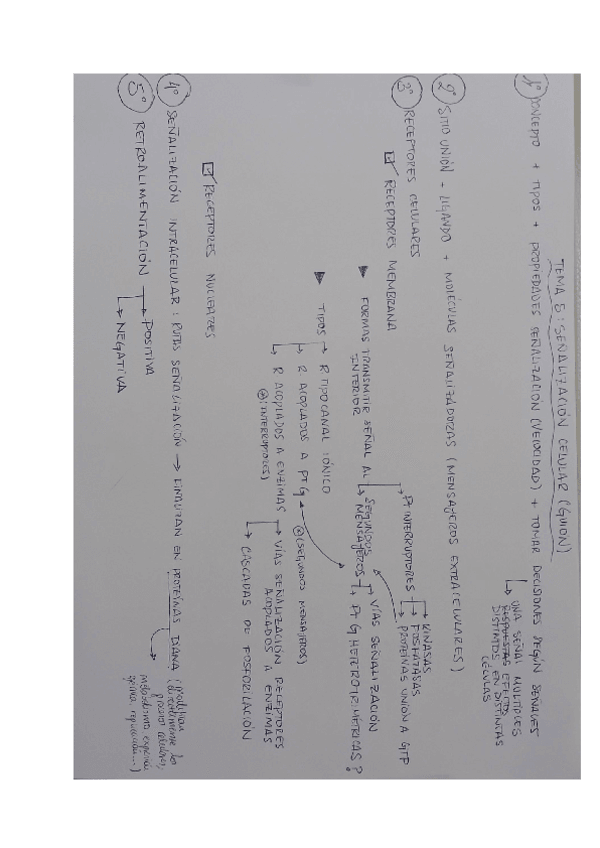 TEMA 5: SEÑALIZACIÓN CELULAR (GUION)
1º CONCEPTO + TIPOS + PROPIEDADES SEÑALIZACION (VELOCIDAD) + TOMAR DECISIONES SEGÚN SEÑALES
UNA SEÑAL MÚLTIPLES
RESPUESTAS EFECTO
DISTINTOS EN DISTINTAS
CÉLULAS
2º SITIO UNIÓN + LIGANDO + MOLÉCULAS SEÑALIZADORAS (MENSAJEROS EXTRACELULARES)
3º RECEPTORES CELULARES
RECEPTORES MEMBRANA
FORMAS TRANSMITIR SEÑAL AL
INTERIOR
PT INTERRUPTORES
KINASAS
FOSFATASAS
PROTEÍNAS UNIÓN A GTP
SEGUNDOS
MENSAJEROS
VÍAS SEÑALIZACIÓN
PT G HETEROTRIMÉTRICAS?
TIPOS
R TIPO CANAL IÓNICO
R ACOPLADOS A PT G
(SEGUNDOS MENSAJEROS)
R ACOPLADOS A ENZIMAS
(INTERRUPTORES)
VÍAS SEÑALIZACIÓN RECEPTORES
ACOPLADOS A ENZIMAS
CASCADAS DE FOSFORILACIÓN
RECEPTORES NUCLEARES
4º SEÑALIZACIÓN INTRACELULAR: RUTAS SEÑALIZACIÓN → CULMINAN EN PROTEÍNAS DIANA
5º RETROALIMENTACIÓN
POSITIVA
NEGATIVA